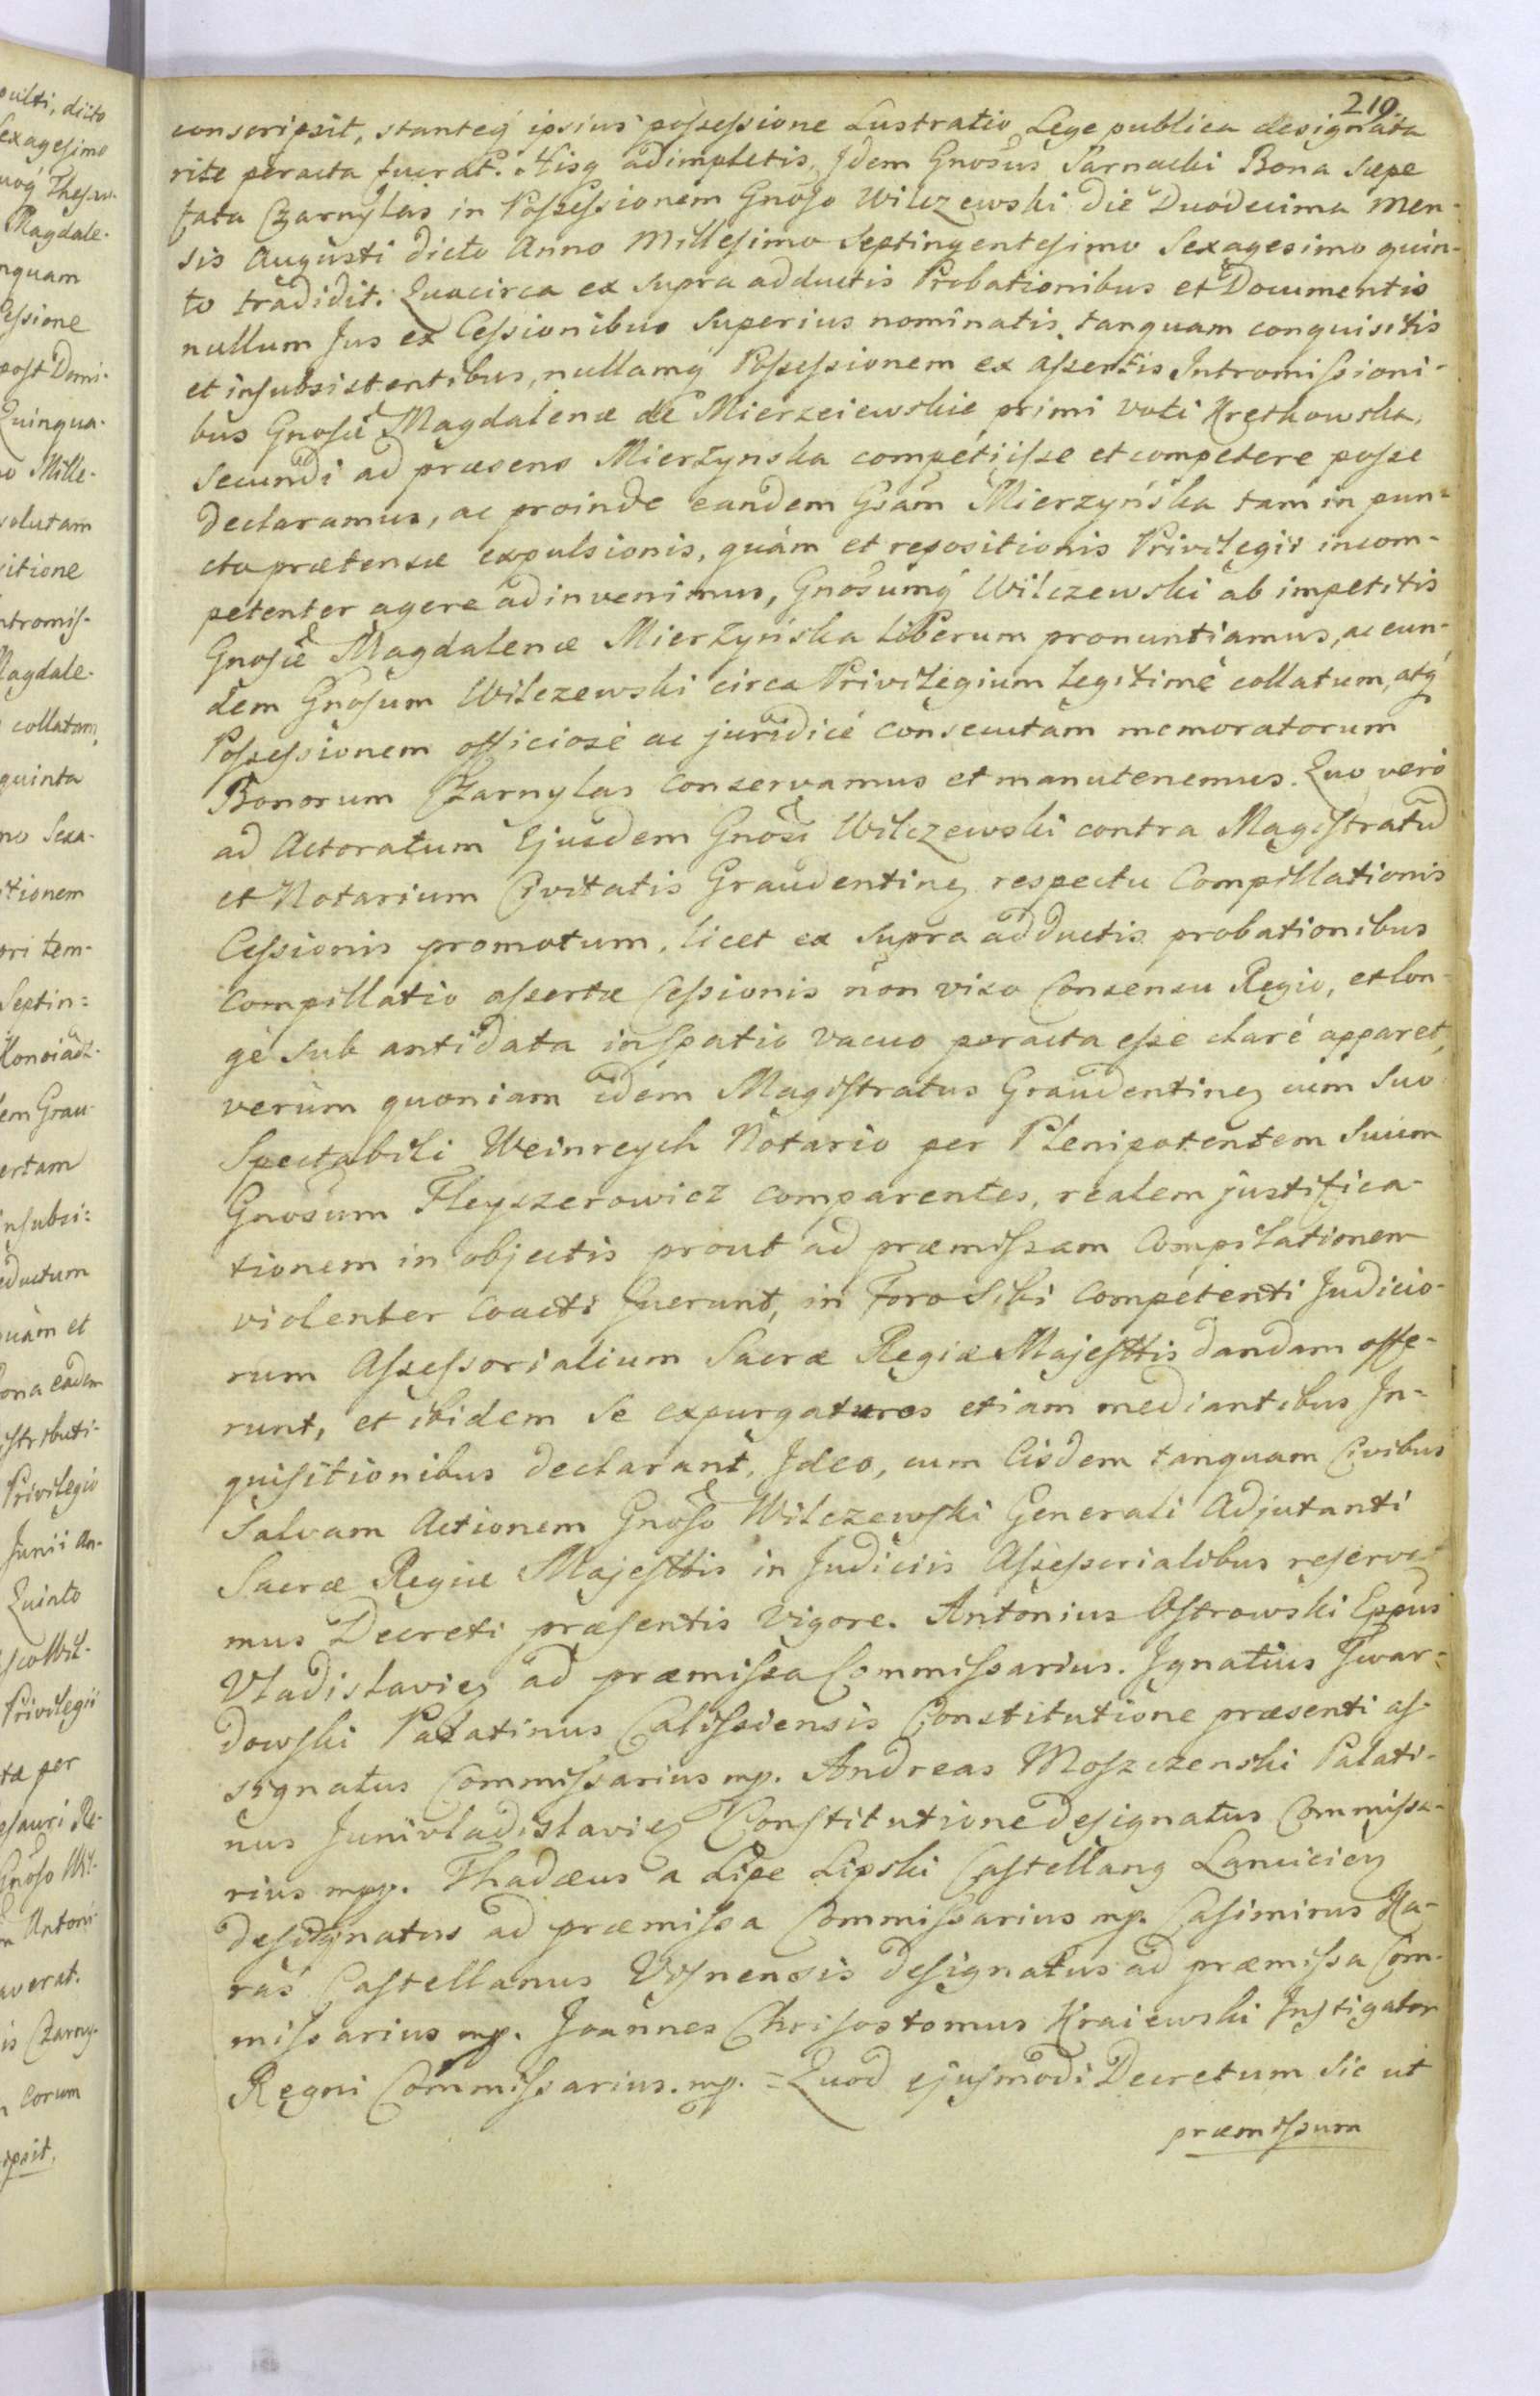 219
conscripsit, stanteq́ ipsius possessione Lustratio Lege publica designata
rite peracta fuerat. Hisq adimpletis, Idem Gnosus Sarnacki Bona Saepe
fata Czarnylas in Possessionem Gnoso Wilczewski die Duodecima men-
sis Augusti dicto Anno Millesimo Septingentesimo Sexagesimo quin-
to tradidit. Quocirca ex supra adductis Probationibus et Documentis
nullum Jus ex Cessionibus superius nominatis, tanquam conquisitis
et insubsistentibus, nullamq́ Possessionem ex assertis Intromissioni-
bus Gnosæ Magdalenæ de Mierzeiewskie primi voti Kretkowska,
Secundi ad præsens Mierzynska competiisse et competere posse
declaramus, ac proinde eandem Gsam Mierzyńska tam in pun-
cto prætensæ expulsionis, quàm et repositionis Privilegii incom-
petenter agere adinvenimus, Gnosumq́ Wilczewski ab impetitis
Gnosæ Magdalenæ Mierzyńska liberum pronuntiamus, ac eun-
dem Gnosum Wilczewski circa Privilegium legitimè collatum, atq́
Possessionem officiosè ac juridicè consecutam memoratorum
Bonorum Czarnylas conservamus et manutenemus. Quo verò
ad Actoratum Ejusdem Gnosi Wilczewski contra Magistratũ
et Notarium Civitatis Graudentineñ respectu Compillationis
Cessionis promotum, licet ex supra adductis probationibus
Compillatio assertæ Cessionis non viso Consensu Regio, et lon-
gè sub antidata in spatio vacuo peracta esse clarè apparet,
verùm quoniam idem Magistratus Graudentineñ cum suo
Spectabili Weinreych Notario per Plenipotentem Suum
Gnosum Fleyszerowicz comparentes, realem justifica-
tionem in objectis prout ad præmissam Compilationem
violenter coacti fuerunt, in Foro Sibi Competenti Judicio-
rum Assessorialium Sacræ Regiæ Majesttis dandam offe-
runt, et ibidem se expurgaturos etiam mediantibus In-
quisitionibus declarant, Ideo, cum Eisdem tanquam Civibus
Salvam Actionem Gnoso Wilczewski Generali Adjutanti
Sacræ Regiæ Majesttis in Judiciis Assessorialibus reserva-
mus Decreti præsentis vigore. Antonius Ostrowski Eppus
Vladislavieñ ad præmissa Commissarius. Ignatius Twar-
dowski Palatinus Calissiensis Constitutione præsenti as-
signatus Commissarius mp. Andreas Moszczenski Palati-
nus Junivladislavieñ Constitutione designatus Commissa-
rius mpp. Thadæus a Lipe Lipski Castellanq Lancicieñ
designatus ad præmissa Commissarius mp. Casimirus Ka-
raś Castellanus Visnensis designatus ad præmissa Com-
missarius mp. Joannes Chrisostomus Kraiewski Instigator
Regni Commissarius. mp. = Quod ejusmodi Decretum sic ut
præmissum